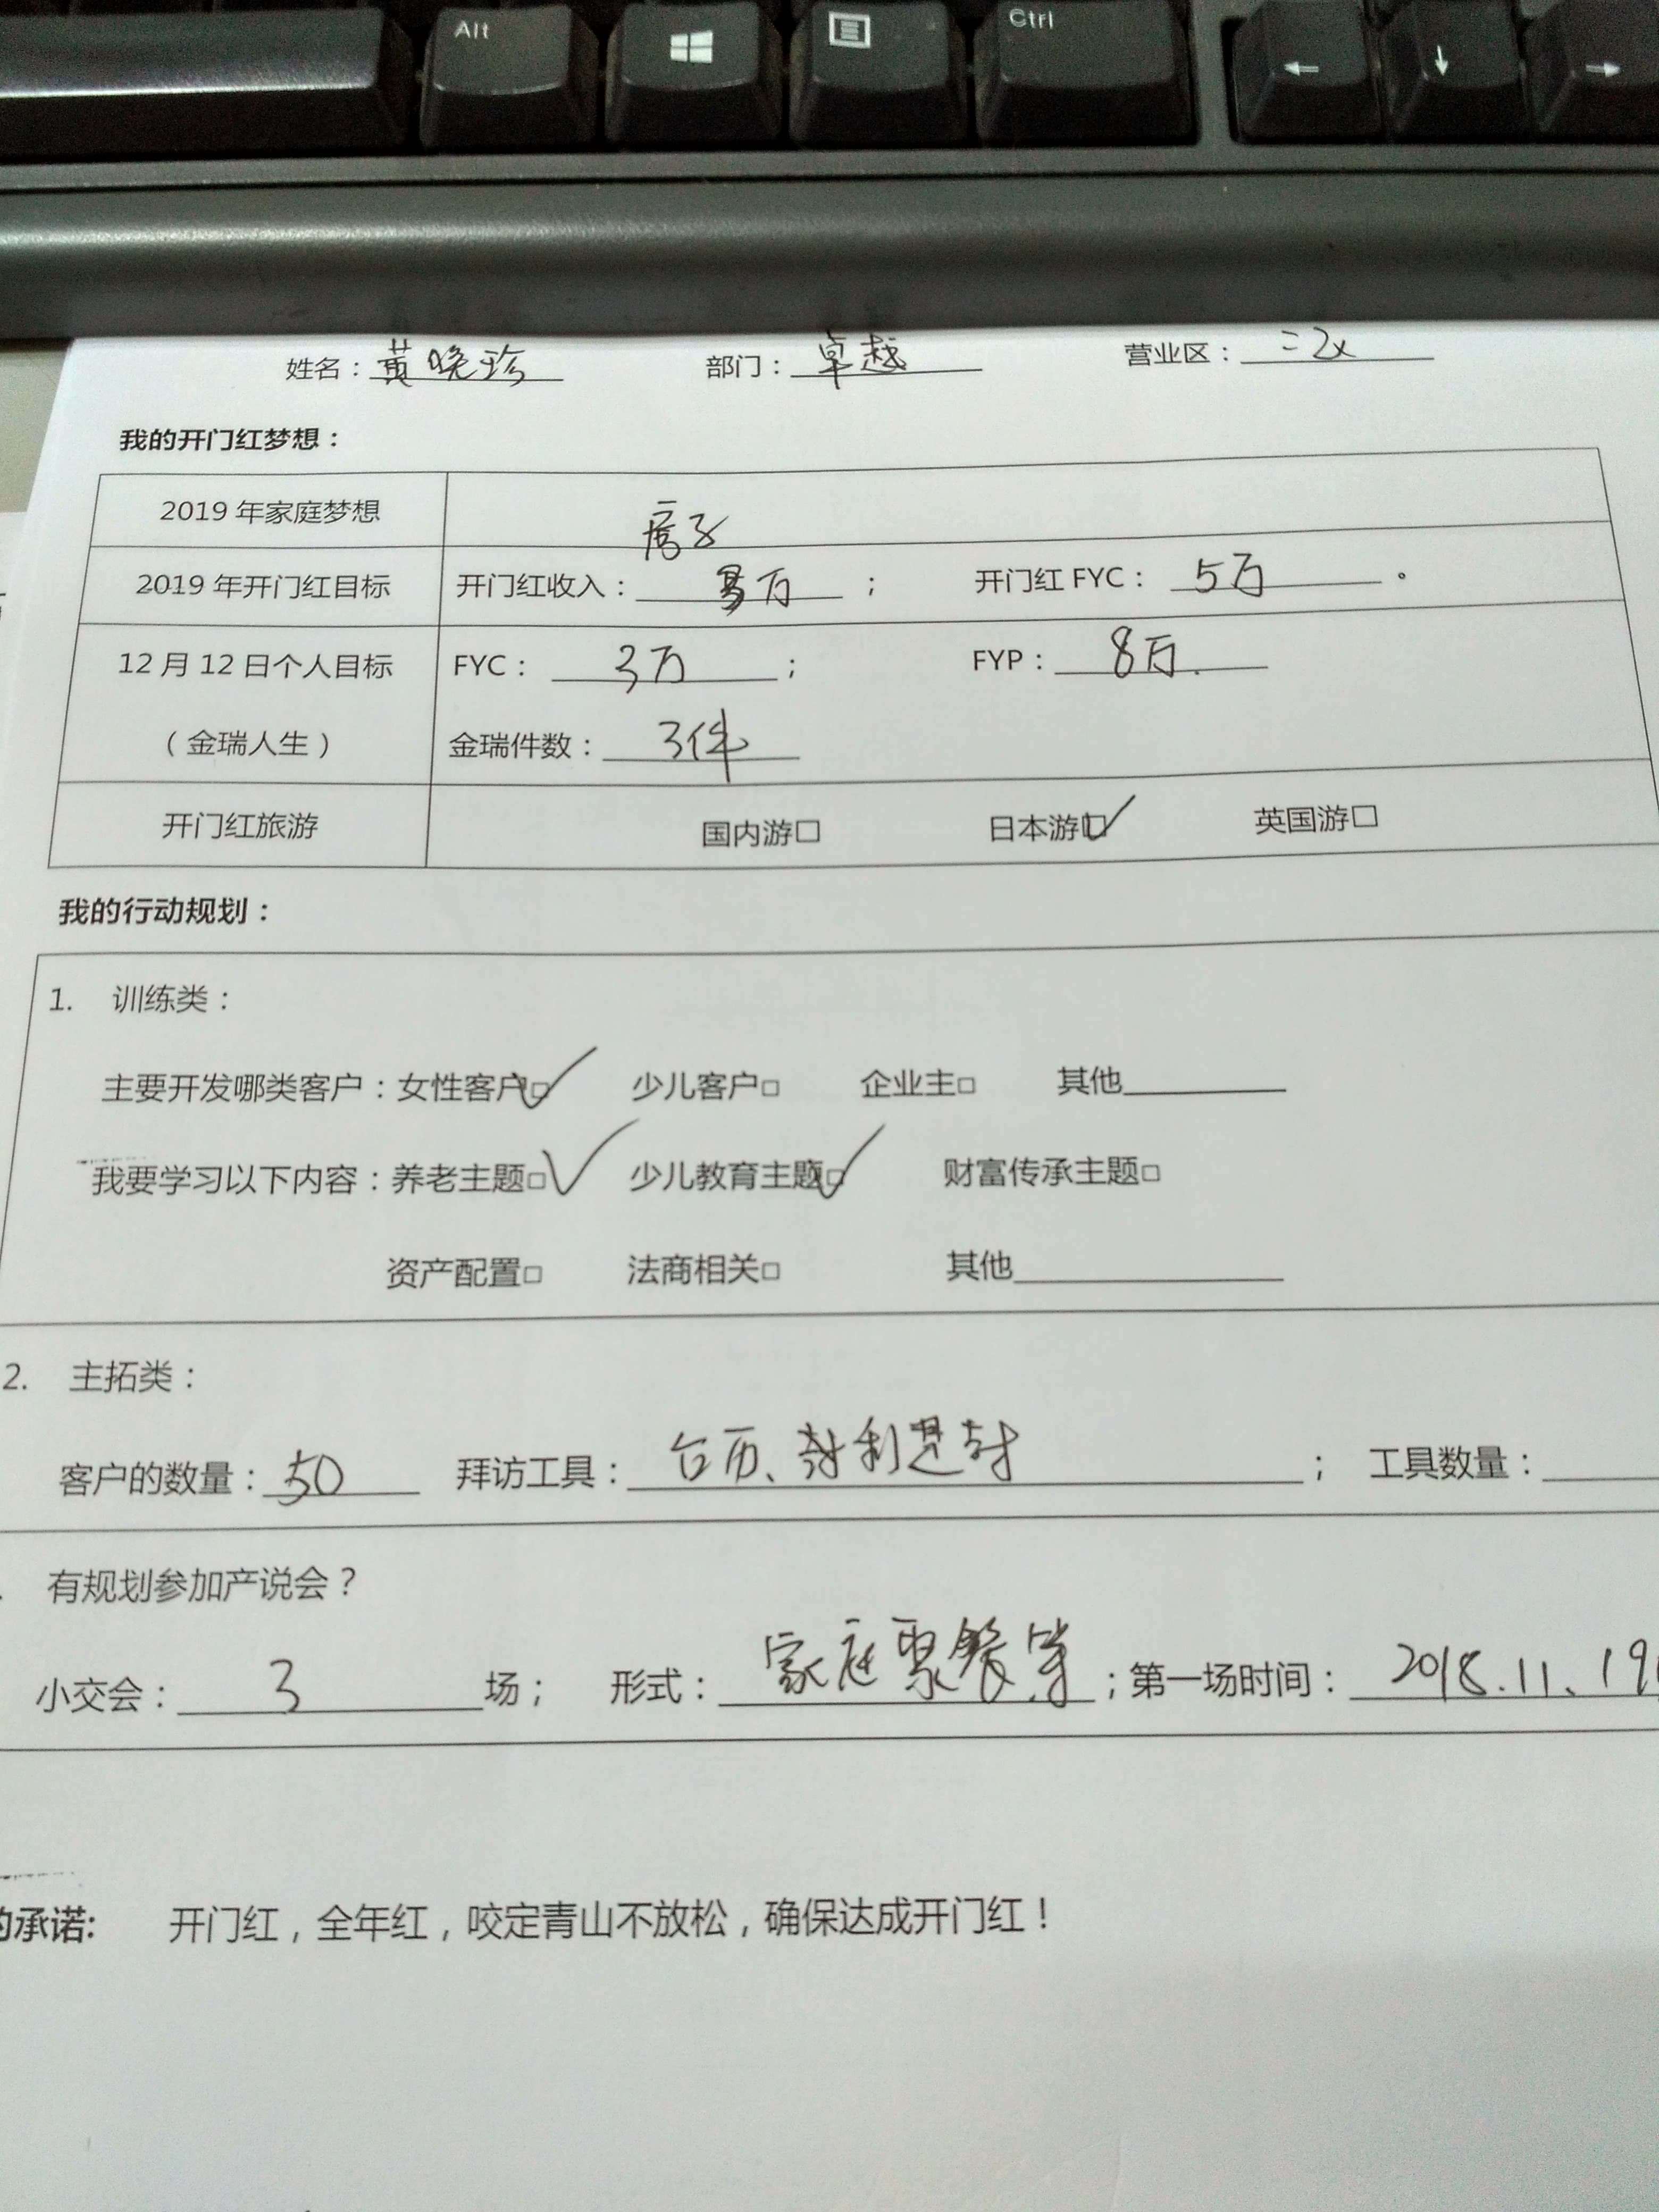 Alt Ctrl
姓名：黄晓珍 部门：卓越 营业区：二区
我的开门红梦想：
2019 年家庭梦想 房子
2019 年开门红目标 开门红收入：万； 开门红 FYC：5万。
12 月 12 日个人目标 FYC：3万； FYP：8万.
（金瑞人生） 金瑞件数：3件
开门红旅游 国内游□ 日本游☑ 英国游□
我的行动规划：
1. 训练类：
主要开发哪类客户：女性客户☑ 少儿客户□ 企业主□ 其他
我要学习以下内容：养老主题☑ 少儿教育主题☑ 财富传承主题□
资产配置□ 法商相关□ 其他
2. 主拓类：
客户的数量：50 拜访工具：台历、； 工具数量：
有规划参加产说会？
小交会：3场； 形式：家庭聚餐等；第一场时间：2018.11.19
的承诺: 开门红，全年红，咬定青山不放松，确保达成开门红！